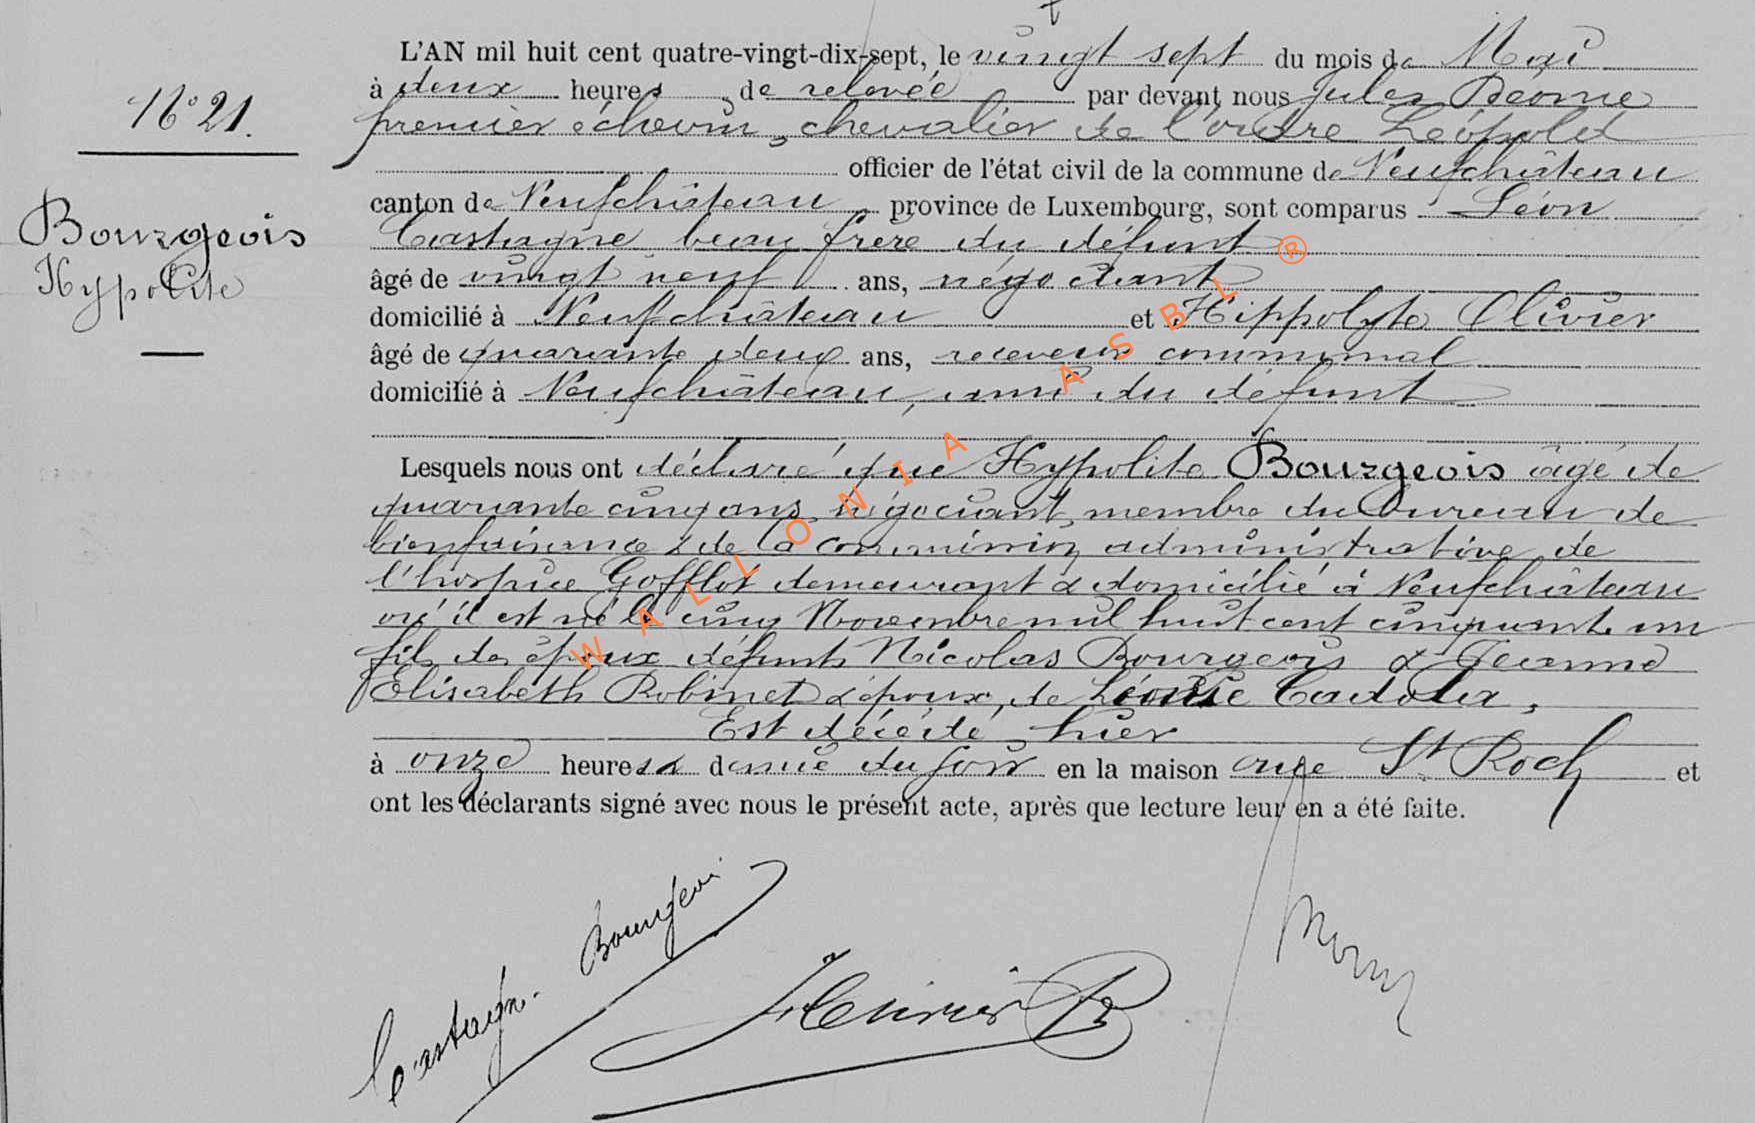 N° 21.
Bourgeois
Hypolite
L'AN mil huit cent quatre-vingt-dix-sept, le vingt sept du mois de Mai
à deux heures de relevée par devant nous Jules
premier échevin, chevalier de l'ordre Léopold
officier de l'état civil de la commune de Neufchâteau
canton de Neufchâteau province de Luxembourg, sont comparus Léon
Castagne beau frère du défunt
âgé de vingt neuf ans, négociant
domicilié à Neufchâteau et Hippolyte Olivier
âgé de quarante deux ans, receveur communal
domicilié à Neufchâteau, ami du défunt
Lesquels nous ont déclaré que Hypolite Bourgeois âgé de
quarante cinq ans, négociant, membre du bureau de
bienfaisance & de la commission administrative de
l'hospice Gofflot demeurant & domicilié à Neufchâteau
où il est né le cinq Novembre mil huit cent cinquante un
fils des époux défunts Nicolas Bourgeois & Jeanne
Elisabeth Robinet & époux de Léonie
Est décédé hier
à onze heures & demie du soir en la maison rue St Roch et
ont les déclarants signé avec nous le présent acte, après que lecture leur en a été faite.
Castagne. Bourgeois
WALLONIA ASBL ®